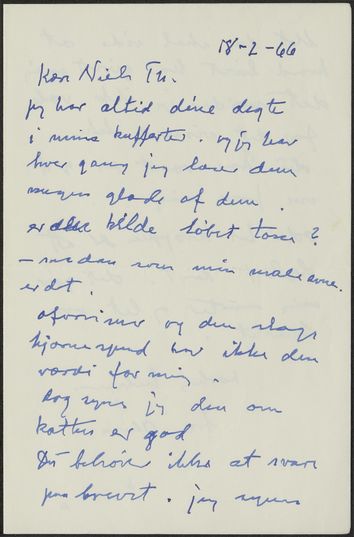 18-2-66
Kære Niels Th.
jeg har altid dine digte
i mine kufferter. og jeg har
hver gang jeg læser dem
megen glæde af dem.
er den kilde løbet tør?
– sådan som min maleevne.
er det.
og den slags
hjernespind har ikke den
værdi for mig.
dog synes jeg den om
katten er god
Du behøver ikke at svare
paa brevet. jeg synes